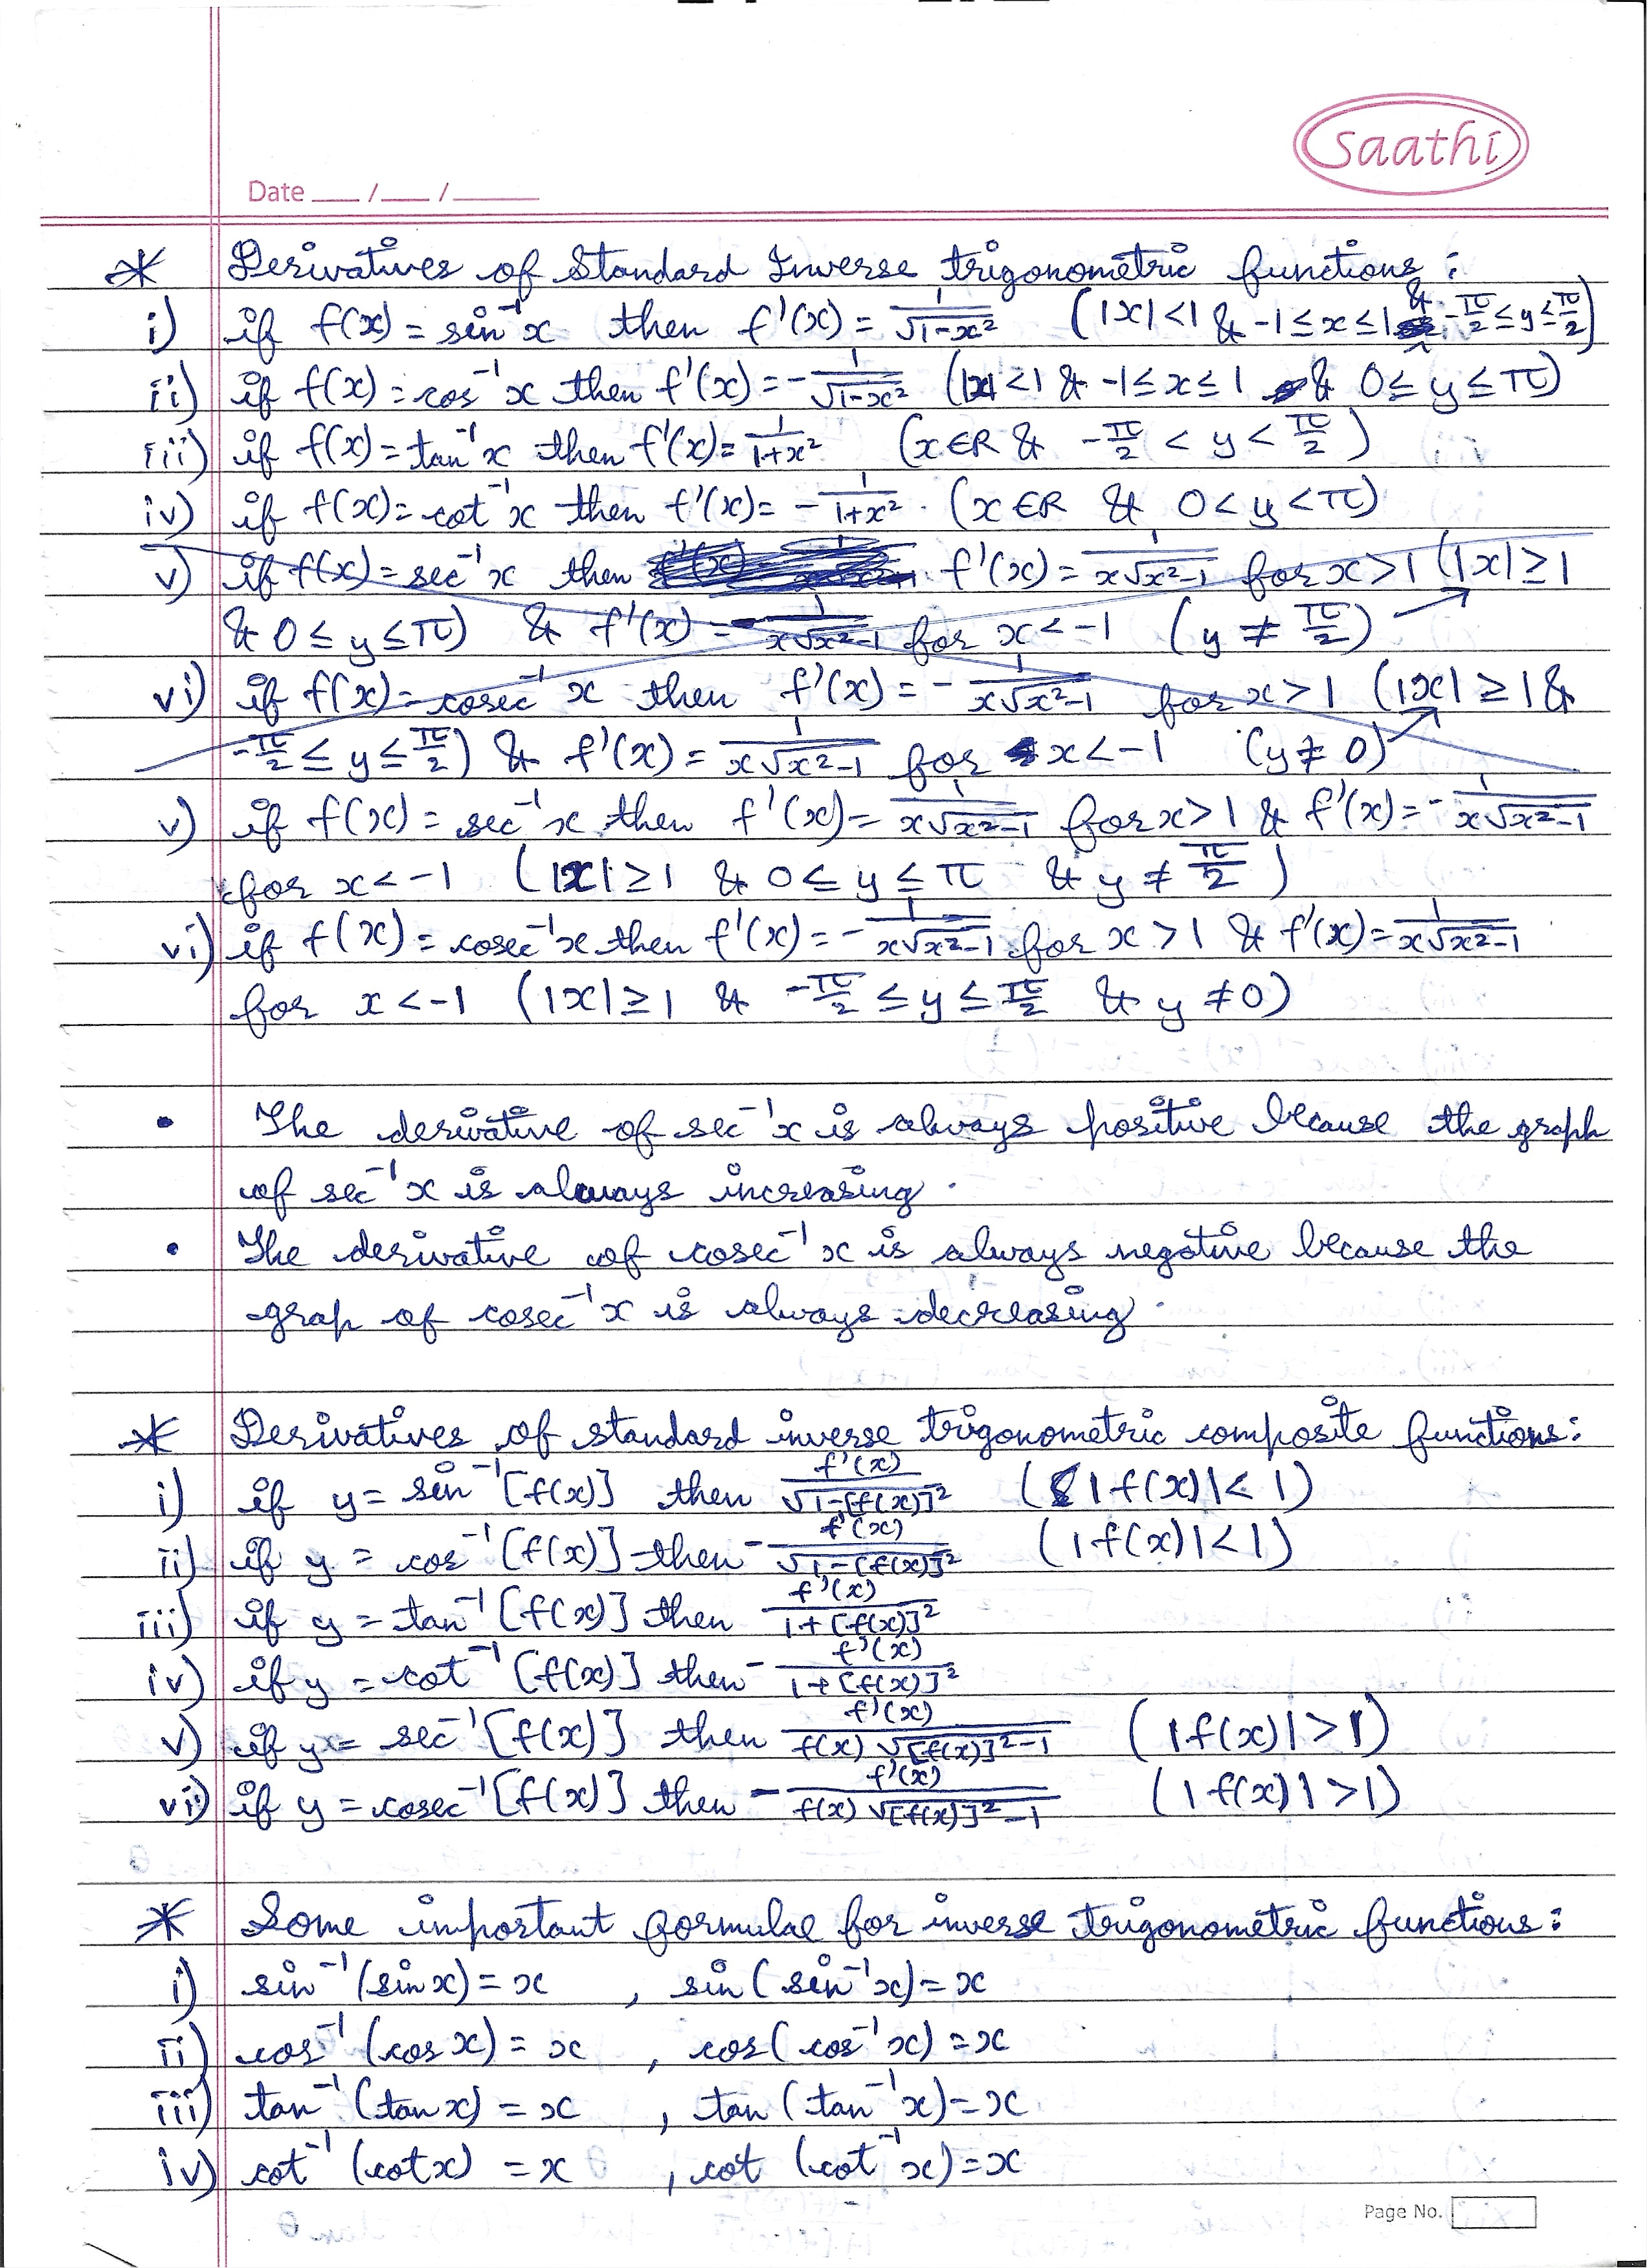 saathi
Date ___/___/_____
* Derivatives of Standard Inverse trigonometric functions :
i) if f(x) = sin⁻¹x then f'(x) = 1/√(1-x²) (|x|<1 & -1≤x≤1 & -π/2≤y≤π/2)
ii) if f(x) = cos⁻¹x then f'(x) = -1/√(1-x²) (|x|<1 & -1≤x≤1 & 0≤y≤π)
iii) if f(x) = tan⁻¹x then f'(x) = 1/(1+x²) (x∈R & -π/2 < y < π/2)
iv) if f(x) = cot⁻¹x then f'(x) = -1/(1+x²) . (x∈R & 0<y<π)
v) if f(x) = sec⁻¹x then f'(x) = 1/(x√(x²-1)) for x>1 (|x|≥1
& 0≤y≤π) & f'(x) = -1/(x√(x²-1)) for x<-1 (y≠π/2)
vi) if f(x) = cosec⁻¹x then f'(x) = -1/(x√(x²-1)) for x>1 (|x|≥1 &
-π/2≤y≤π/2) & f'(x) = 1/(x√(x²-1)) for x<-1 (y≠0)
v) if f(x) = sec⁻¹x then f'(x) = 1/(x√(x²-1)) for x>1 & f'(x) = -1/(x√(x²-1))
for x<-1 (|x|≥1 & 0≤y≤π & y≠π/2)
vi) if f(x) = cosec⁻¹x then f'(x) = -1/(x√(x²-1)) for x>1 & f'(x) = 1/(x√(x²-1))
for x<-1 (|x|≥1 & -π/2≤y≤π/2 & y≠0)
• The derivative of sec⁻¹x is always positive because the graph
of sec⁻¹x is always increasing.
• The derivative of cosec⁻¹x is always negative because the
grap of cosec⁻¹x is always decreasing.
* Derivatives of standard inverse trigonometric composite functions:
i) if y = sin⁻¹[f(x)] then f'(x)/√(1-[f(x)]²) (|f(x)|<1)
ii) if y = cos⁻¹[f(x)] then -f'(x)/√(1-[f(x)]²) (|f(x)|<1)
iii) if y = tan⁻¹[f(x)] then f'(x)/(1+[f(x)]²)
iv) if y = cot⁻¹[f(x)] then -f'(x)/(1+[f(x)]²)
v) if y = sec⁻¹[f(x)] then f'(x)/(f(x)√([f(x)]²-1)) (|f(x)|>1)
vi) if y = cosec⁻¹[f(x)] then -f'(x)/(f(x)√([f(x)]²-1)) (|f(x)|>1)
* Some important formulae for inverse trigonometric functions:
i) sin⁻¹(sin x) = x , sin(sin⁻¹x) = x
ii) cos⁻¹(cos x) = x , cos(cos⁻¹x) = x
iii) tan⁻¹(tan x) = x , tan(tan⁻¹x) = x
iv) cot⁻¹(cot x) = x , cot(cot⁻¹x) = x
Page No.